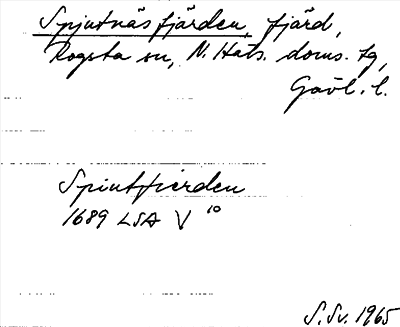 Spjutnäsfjärden, fjärd,
Rogsta sn, N. Häls. doms. tg,
Gävl. l.
Spintfierden
1689 LSA V 10
S. Sv. 1965